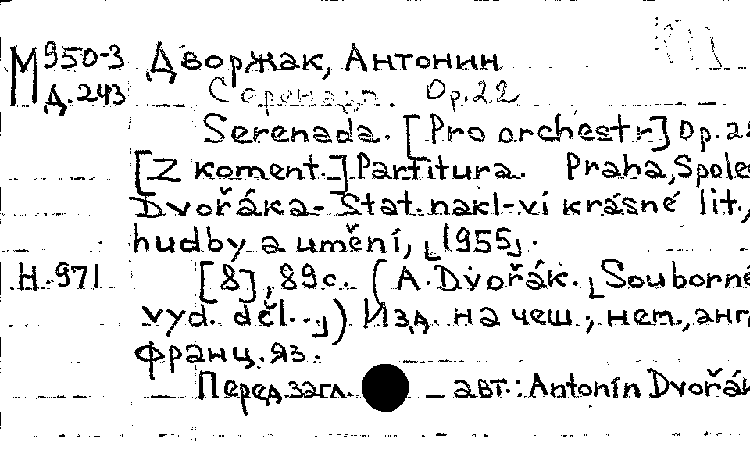 М 950-3 Дворжак, Антонин
Д.243 Серенада. Op.22
Serenada. [Pro orchestr] Op.22
[Z koment.] Partitura. Praha, Spole
Dvořáka-Stat.nakl-ví krásné lit.,
hudby a umění, [1955].
Н-971 [8], 89с. (A.Dvořák. [Souborné
vyd. děl...]) Изд. на чеш., нем., анг
франц.яз.
Перед загл. — авт.: Antonín Dvořák